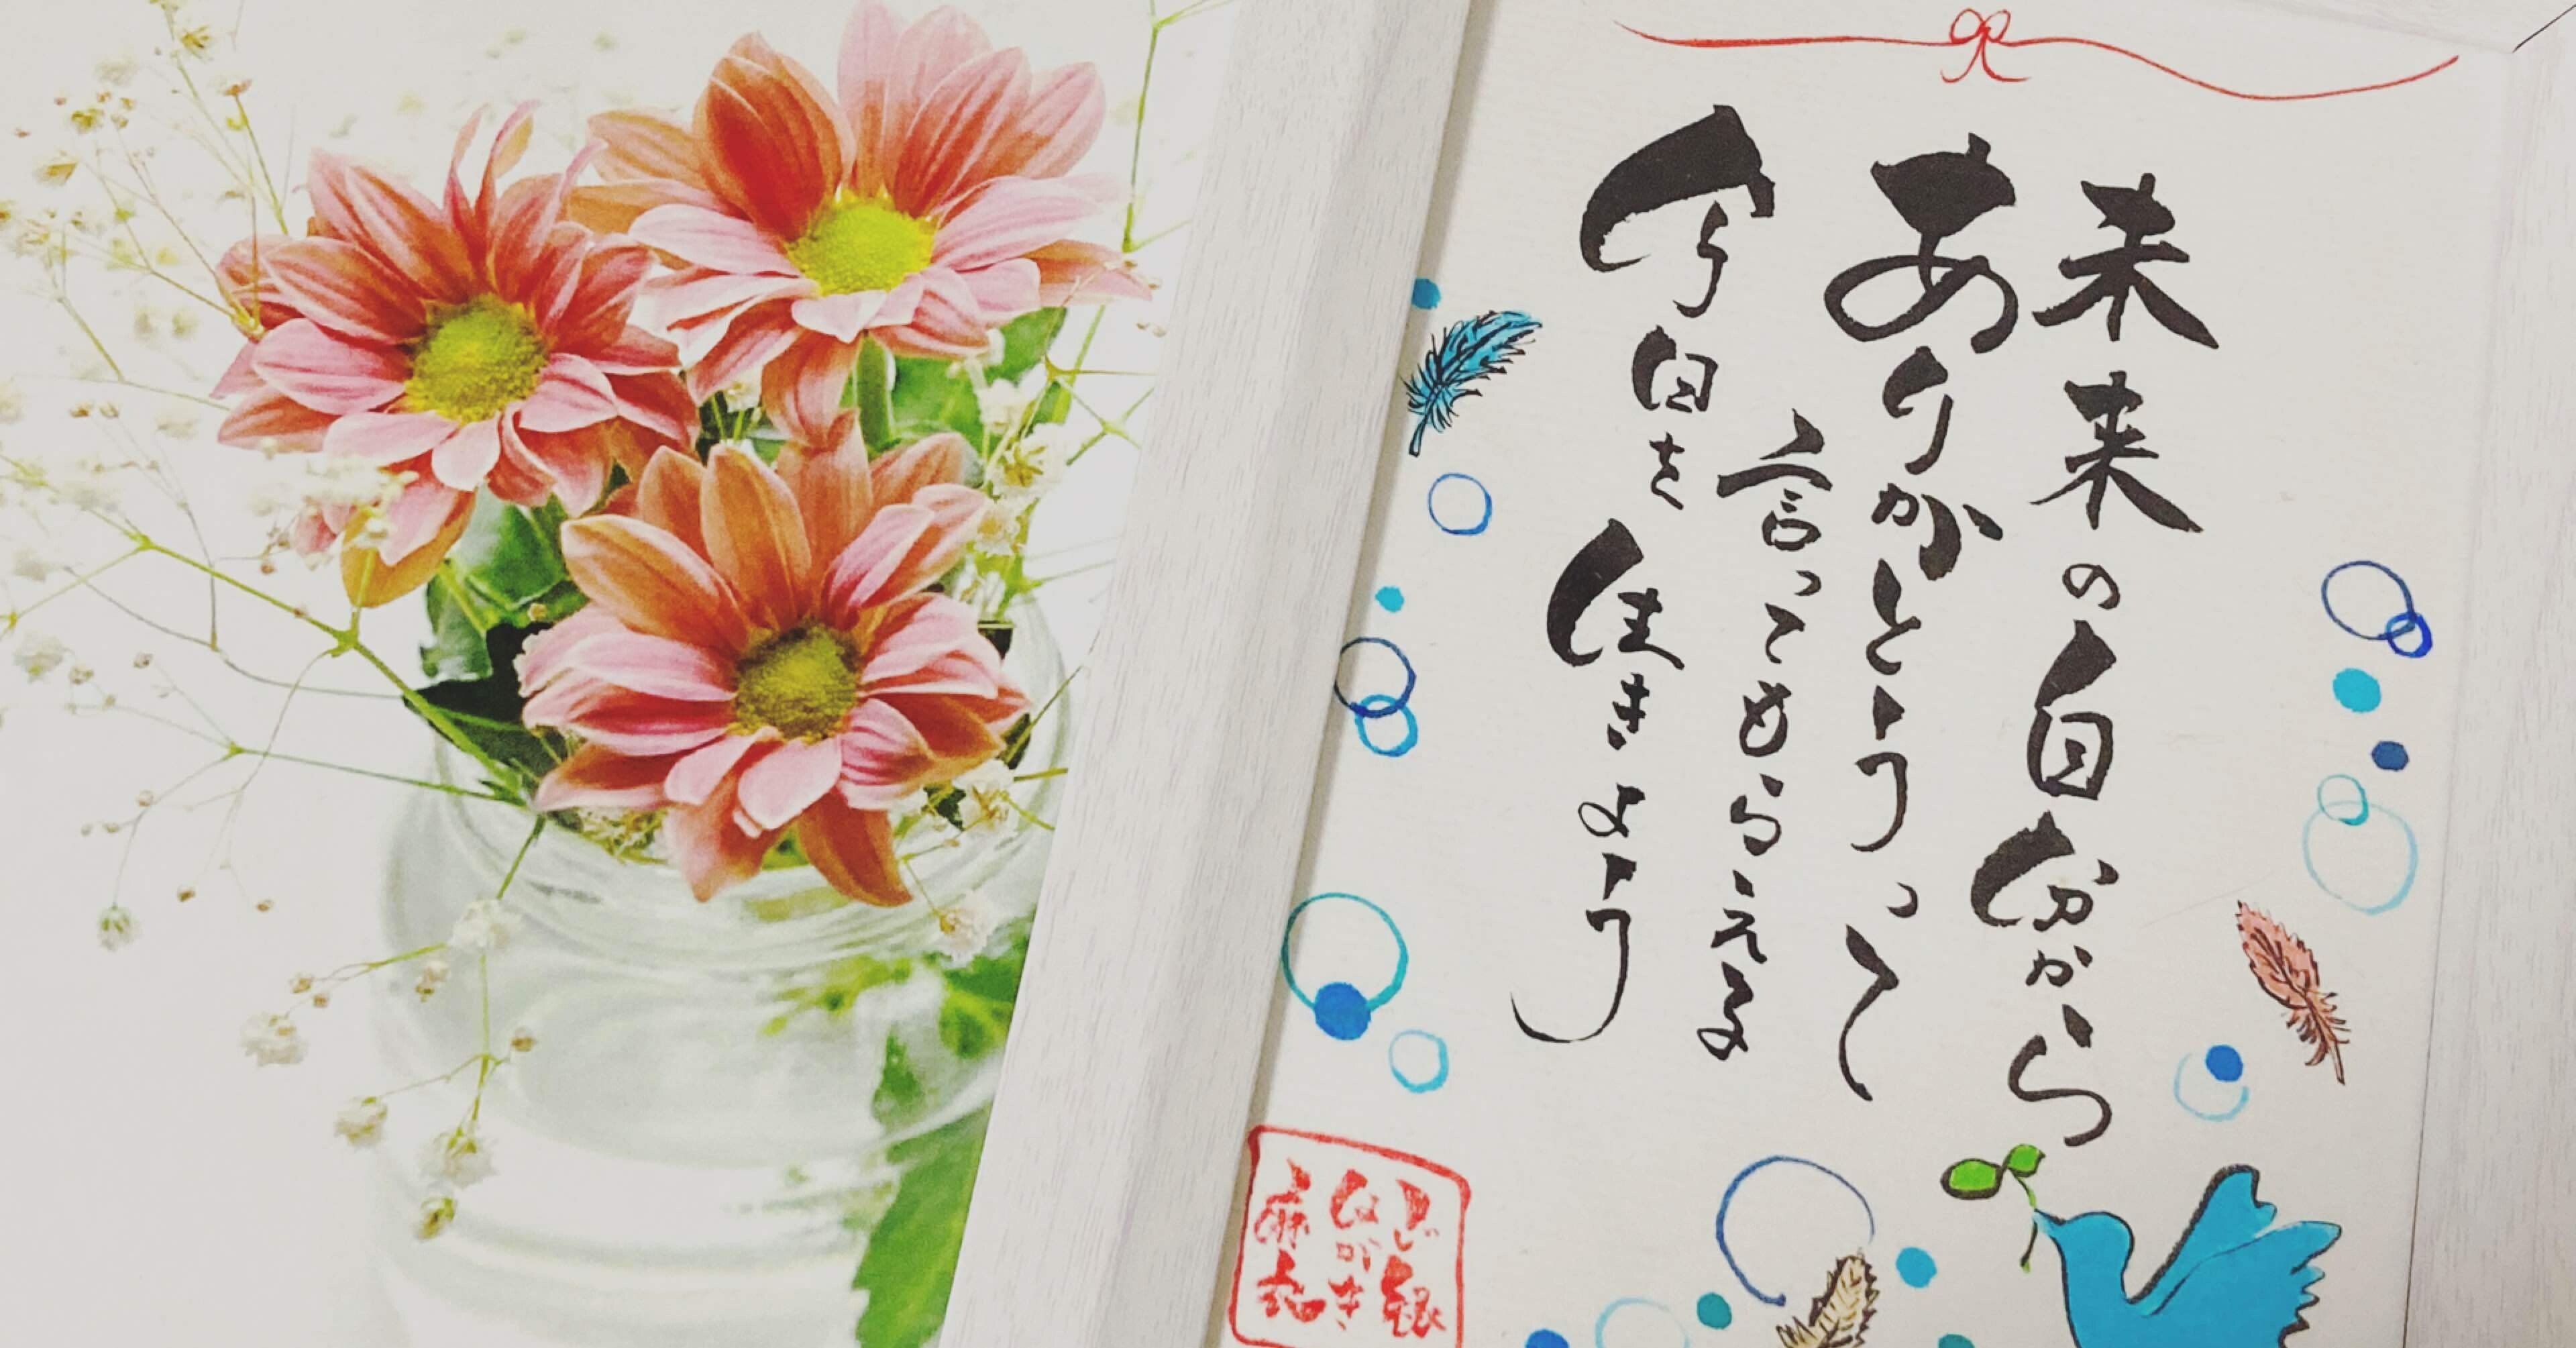 未来の自分から
ありがとうって
言ってもらえる
今日を生きよう